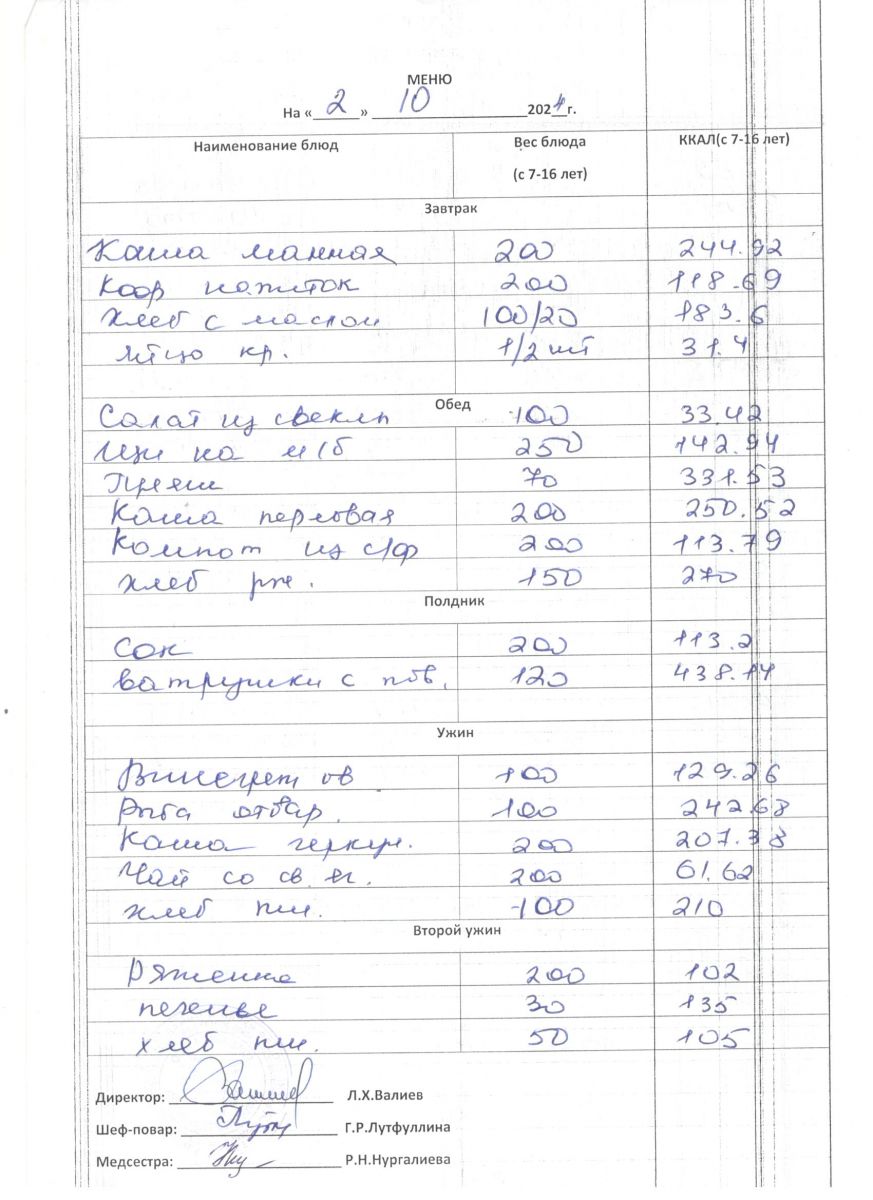 МЕНЮ
На «2» 10 2024г.
Наименование блюд Вес блюда (с 7-16 лет) ККАЛ(с 7-16 лет)
Завтрак
Каша манная 200 244.92
Коф напиток 200 118.69
Хлеб с маслом 100/20 183.6
Яйцо кр. 1/2 шт 31.4
Обед
Салат из свеклы 100 33.42
Щи на м/б 250 142.94
70 331.53
Каша перловая 200 250.52
Компот из с/ф 200 113.79
Хлеб рж. 150 270
Полдник
Сок 200 113.2
ватрушки с пов. 120 438.14
Ужин
Винегрет ов 100 129.26
Рыба отвар. 100 242.68
Каша геркул. 200 207.38
Чай со св. яг. 200 61.62
Хлеб пш. 100 210
Второй ужин
Ряженка 200 102
печенье 30 135
хлеб пш. 50 105
Директор: Л.Х.Валиев
Шеф-повар: Г.Р.Лутфуллина
Медсестра: Р.Н.Нургалиева